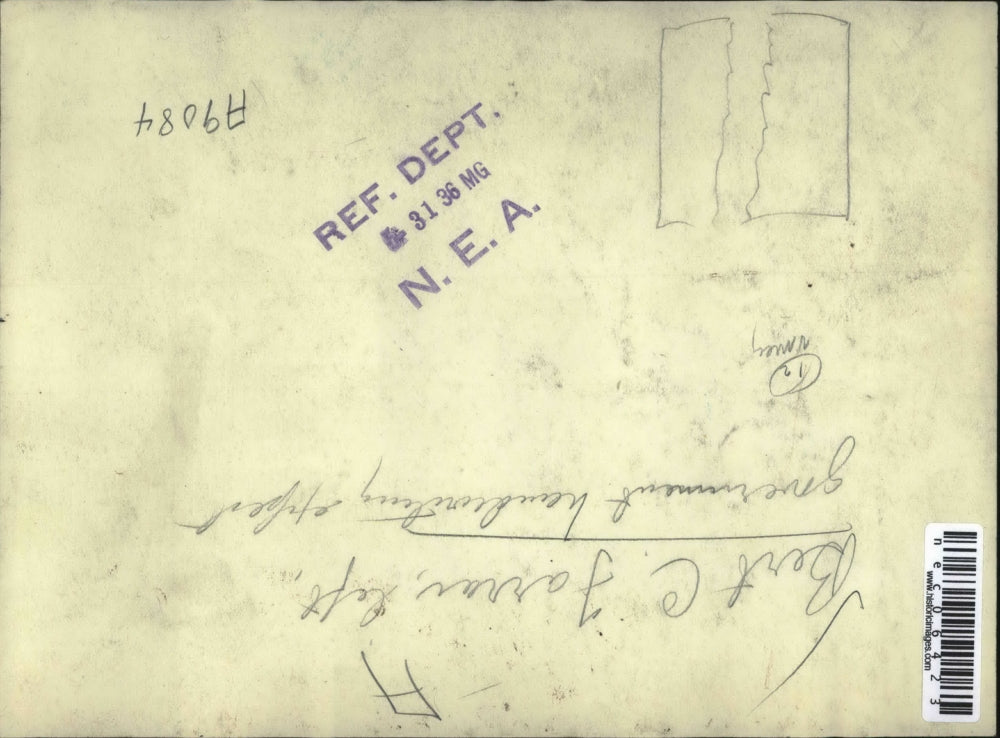 A9084
REF. DEPT.
31 36 MG
N. E. A.
A
Bert C Farrar, left,
government handwriting expert
12
nec06423
www.historicimages.com